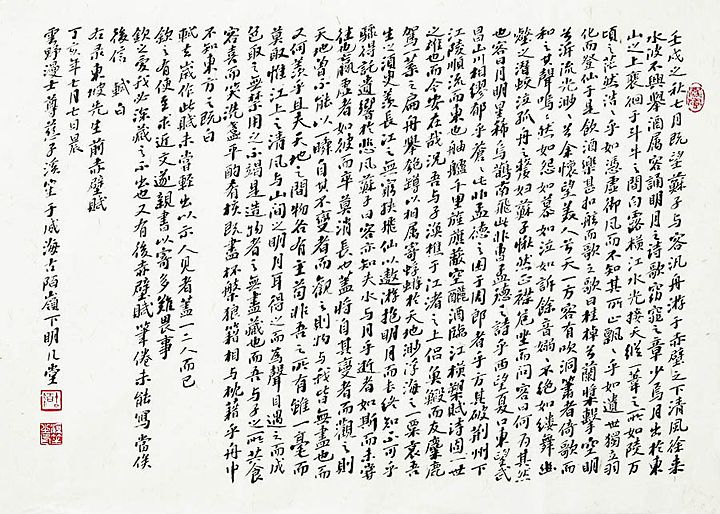 壬戌之秋七月既望蘇子与客汎舟游于赤壁之下清風徐来
水波不興舉酒屬客誦明月之詩歌窈窕之章少焉月出於東
山之上裵徊于斗牛之間白露橫江水光接天縱一葦之所如陵万
頃之茫然浩浩乎如憑虛御風而不知其所止飄飄乎如遺世獨立羽
化而登仙于是飲酒樂甚扣舷而歌之歌曰桂棹兮蘭槳擊空明
兮泝流光渺渺兮余懷望美人兮天一方客有吹洞簫者倚歌而
和之其聲嗚嗚然如怨如慕如泣如訴餘音嫋嫋不絕如縷舞幽
壑之潛蛟泣孤舟之嫠婦蘇子愀然正襟危坐而問客曰何為其然
也客曰月明星稀烏鵲南飛此非曹孟德之詩乎西望夏口東望武
昌山川相繆郁乎蒼蒼此非孟德之困于周郎者乎方其破荆州下
江陵順流而東也舳艫千里旌旗蔽空釃酒臨江橫槊賦詩固一世
之雄也而今安在哉況吾与子漁樵于江渚之上侣魚鰕而友麋鹿
駕一葉之扁舟舉匏罇以相屬寄蜉蝣於天地渺浮海之一粟哀吾
生之須臾羨長江之無窮挾飛仙以遨游抱明月而長終知不可乎
驟得託遺響於悲風蘇子曰客亦知夫水与月乎逝者如斯而未嘗
往也贏虛者如彼而卒莫消長也盖將自其變者而觀之則
天地曾不能以一瞬自其不變者而觀之則物与我皆無盡也而
又何羨乎且夫天地之間物各有主苟非吾之所有雖一毫而
莫取惟江上之清風与山間之明月耳得之而為聲目遇之而成
色取之無禁用之不竭是造物者之無盡藏也而吾与子之所共食
客喜而笑洗盞更酌肴核既盡杯槃狼籍相与枕藉乎舟中
不知東方之既白
軾去歲作此賦未嘗輕出以示人見者盖一二人而已
欽之有使至求近文遂親書以寄多難畏事
欽之愛我必深藏之不出也又有後赤壁賦筆倦未能寫當俟
後信 軾白
右录東坡先生前赤壁賦
丁亥年七月七日晨
雲野漫士 于威海古陌嶺下明几堂